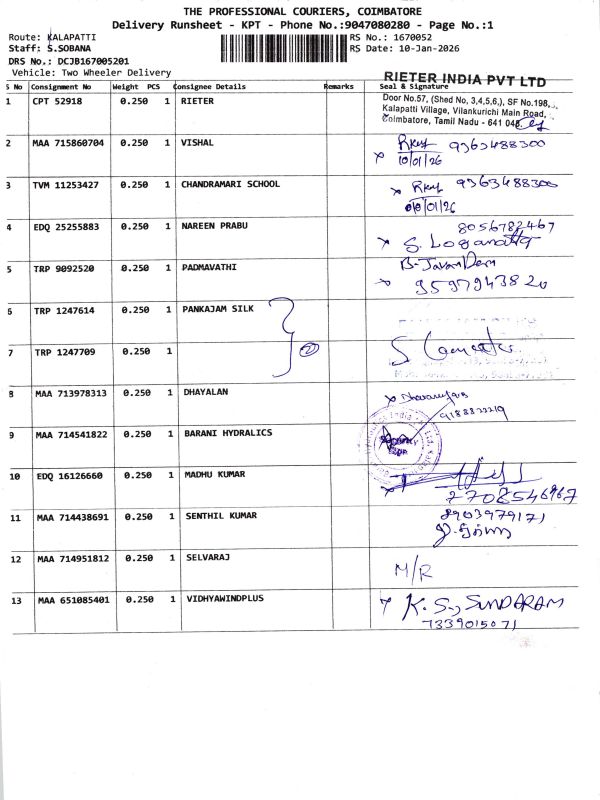 THE PROFESSIONAL COURIERS, COIMBATORE
Delivery Runsheet - KPT - Phone No.:9047080280 - Page No.:1
Route: KALAPATTI
RS No.: 1670052
Staff: S.SOBANA
RS Date: 10-Jan-2026
DRS No.: DCJB167005201
Vehicle: Two Wheeler Delivery
RIETER INDIA PVT LTD
S No Consignment No Weight PCS Consignee Details Remarks Seal & Signature
1 CPT 52918 0.250 1 RIETER
Door No.57, (Shed No, 3,4,5,6,), SF No.198,
Kalapatti Village, Vilankurichi Main Road,
Coimbatore, Tamil Nadu - 641
2 MAA 715860704 0.250 1 VISHAL 9363488300
10/01/26
3 TVM 11253427 0.250 1 CHANDRAMARI SCHOOL 9363488300
10/01/26
4 EDQ 25255883 0.250 1 NAREEN PRABU 8056782467
5 TRP 9092520 0.250 1 PADMAVATHI
9597943820
6 TRP 1247614 0.250 1 PANKAJAM SILK
7 TRP 1247709 0.250 1 2
8 MAA 713978313 0.250 1 DHAYALAN
9 MAA 714541822 0.250 1 BARANI HYDRALICS
Security
10 EDQ 16126660 0.250 1 MADHU KUMAR
2708546967
11 MAA 714438691 0.250 1 SENTHIL KUMAR 8903979171
12 MAA 714951812 0.250 1 SELVARAJ
M/R
13 MAA 651085401 0.250 1 VIDHYAWINDPLUS K.S., SUNDARAM
7339015071